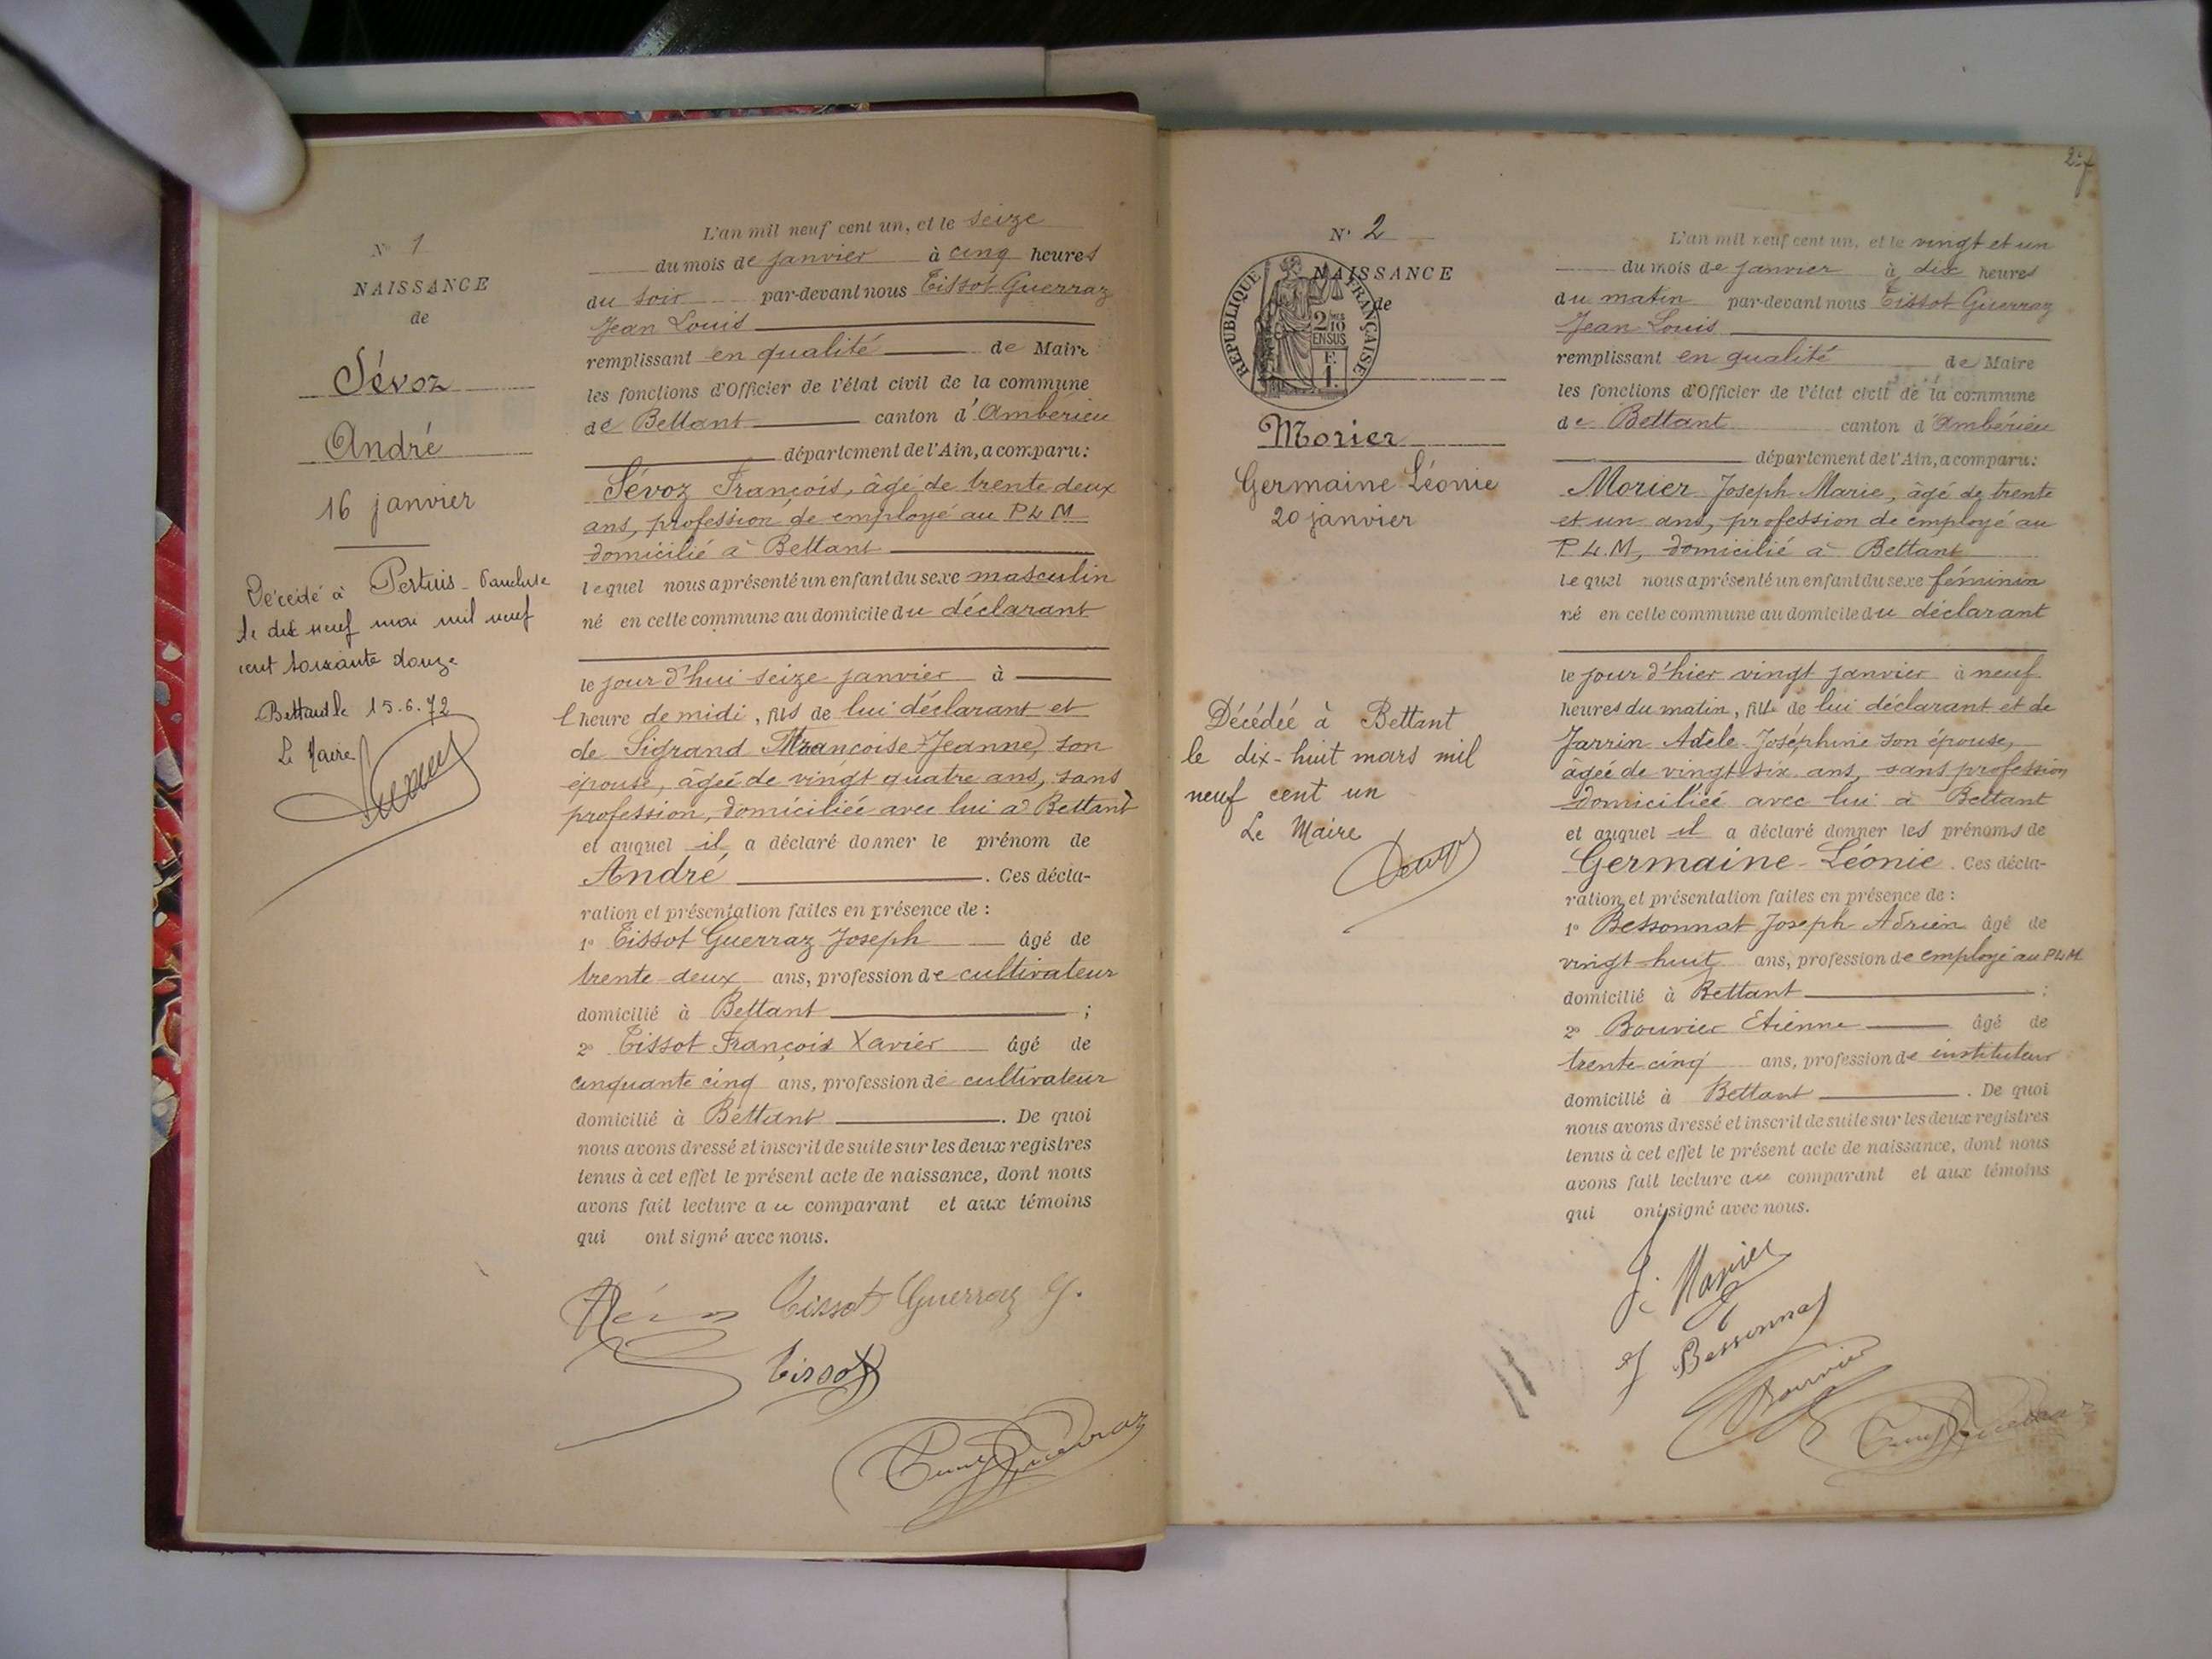 N° 1
NAISSANCE
de
Sévoz
André
16 janvier
Décédé à Pertuis - Vaucluse
le dix neuf mai mil neuf
cent soixante douze
Bettant le 15.6.72
Le Maire
L'an mil neuf cent un, et le seize
du mois de janvier à cinq heures
du soir par-devant nous Tissot Guerraz
Jean Louis
remplissant en qualité de Maire
les fonctions d'Officier de l'état civil de la commune
de Bettant canton d'Ambérieu
département de l'Ain, a comparu:
Sévoz François, âgé de trente deux
ans, profession de employé au P L M
domicilié à Bettant
lequel nous a présenté un enfant du sexe masculin
né en cette commune au domicile du déclarant
le jour d'hui seize janvier à
l'heure de midi, fils de lui déclarant et
de Sigrand Françoise Jeanne, son
épouse, agée de vingt quatre ans, sans
profession, domiciliée avec lui à Bettant
et auquel il a déclaré donner le prénom de
André . Ces décla-
ration et présentation faites en présence de :
1° Tissot Guerraz Joseph âgé de
trente-deux ans, profession de cultivateur
domicilié à Bettant ;
2° Tissot François Xavier âgé de
cinquante cinq ans, profession de cultivateur
domicilié à Bettant . De quoi
nous avons dressé et inscrit de suite sur les deux registres
tenus à cet effet le présent acte de naissance, dont nous
avons fait lecture au comparant et aux témoins
qui ont signé avec nous.
Tissot Guerraz J.
Tissot
Guerraz
N° 2
NAISSANCE
de
REPUBLIQUE FRANÇAISE
2/10
EN SUS
F.
1.
Morier
Germaine Léonie
20 janvier
Décédée à Bettant
le dix-huit mars mil
neuf cent un
Le Maire
L'an mil neuf cent un, et le vingt et un
du mois de janvier à dix heures
du matin par-devant nous Tissot Guerraz
Jean Louis
remplissant en qualité de Maire
les fonctions d'Officier de l'état civil de la commune
de Bettant canton d'Ambérieu
département de l'Ain, a comparu:
Morier Joseph Marie, âgé de trente
et un ans, profession de employé au
P.L.M, domicilié à Bettant
lequel nous a présenté un enfant du sexe féminin
né en cette commune au domicile du déclarant
le jour d'hier vingt janvier à neuf
heures du matin, fille de lui déclarant et de
Jarrin Adèle Joséphine son épouse,
âgée de vingt six ans, sans profession
domiciliée avec lui à Bettant
et auquel il a déclaré donner les prénoms de
Germaine-Léonie . Ces décla-
ration et présentation faites en présence de :
1° Bessonnat Joseph Adrien âgé de
vingt-huit ans, profession de employé au PLM
domicilié à Bettant ;
2° Bouvier Etienne âgé de
trente-cinq ans, profession de instituteur
domicilié à Bettant . De quoi
nous avons dressé et inscrit de suite sur les deux registres
tenus à cet effet le présent acte de naissance, dont nous
avons fait lecture au comparant et aux témoins
qui ont signé avec nous.
J. Morier
J Bessonnat
Bouvier